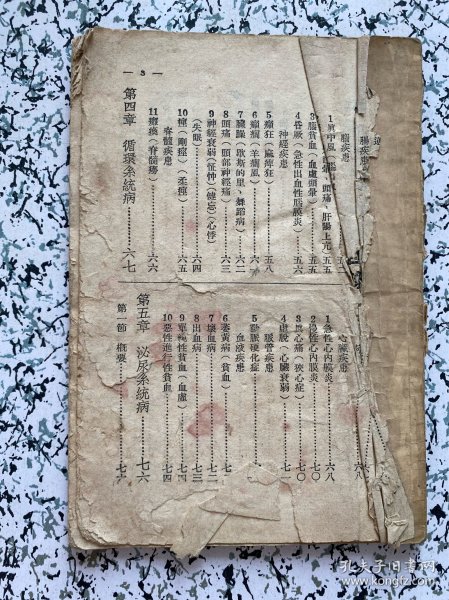 腦疾患
1 眞中風
頭痛、肝陽上亢……五五
3 腦貧血(血虛頭暈)……五五
4 昏厥(急性出血性腦膜炎)……五六
神經疾患
5 癲狂(麻痺狂)……五八
6 癲癇(羊癲風)
7 臟躁(歇斯的里、舞蹈病)
8 頭痛(頭部神經痛)……六三
9 神經衰弱(怔忡)(健忘)(心悸)
(失眠)……六四
10 痙(剛痙)(柔痙)……六五
脊髓疾患
11 癱瘓(脊髓癆)……六六
第四章 循環系統病……六七
— 3 —
心臟疾患
1 急性心內膜炎……六八
2 慢性心內膜炎……七〇
3 眞心痛(狹心症)……七〇
4 虛脫(心臟衰弱)……七一
脈管疾患
5 動脈硬化症
血液疾患
6 萎黃病(貧血)
7 壞血病……七二
8 出血病……七三
9 單純性貧血(血虛)……七四
10 惡性進行性貧血……七四
第五章 泌尿系統病……七六
第一節 概要……七六
孔夫子旧书网